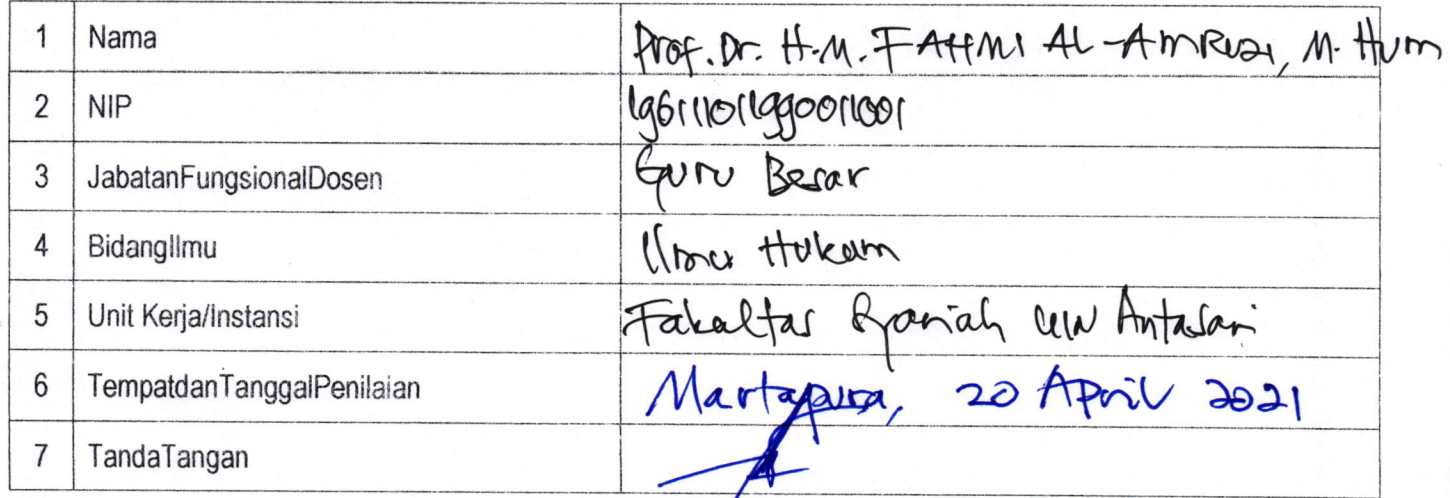 1 Nama Prof. Dr. H. M. FAHMI AL-AMRUZI, M. Hum
2 NIP 196111011990011001
3 JabatanFungsionalDosen Guru Besar
4 BidangIlmu Ilmu Hukum
5 Unit Kerja/Instansi Fakultas Syariah UIN Antasari
6 TempatdanTanggalPenilaian Martapura, 20 April 2021
7 TandaTangan